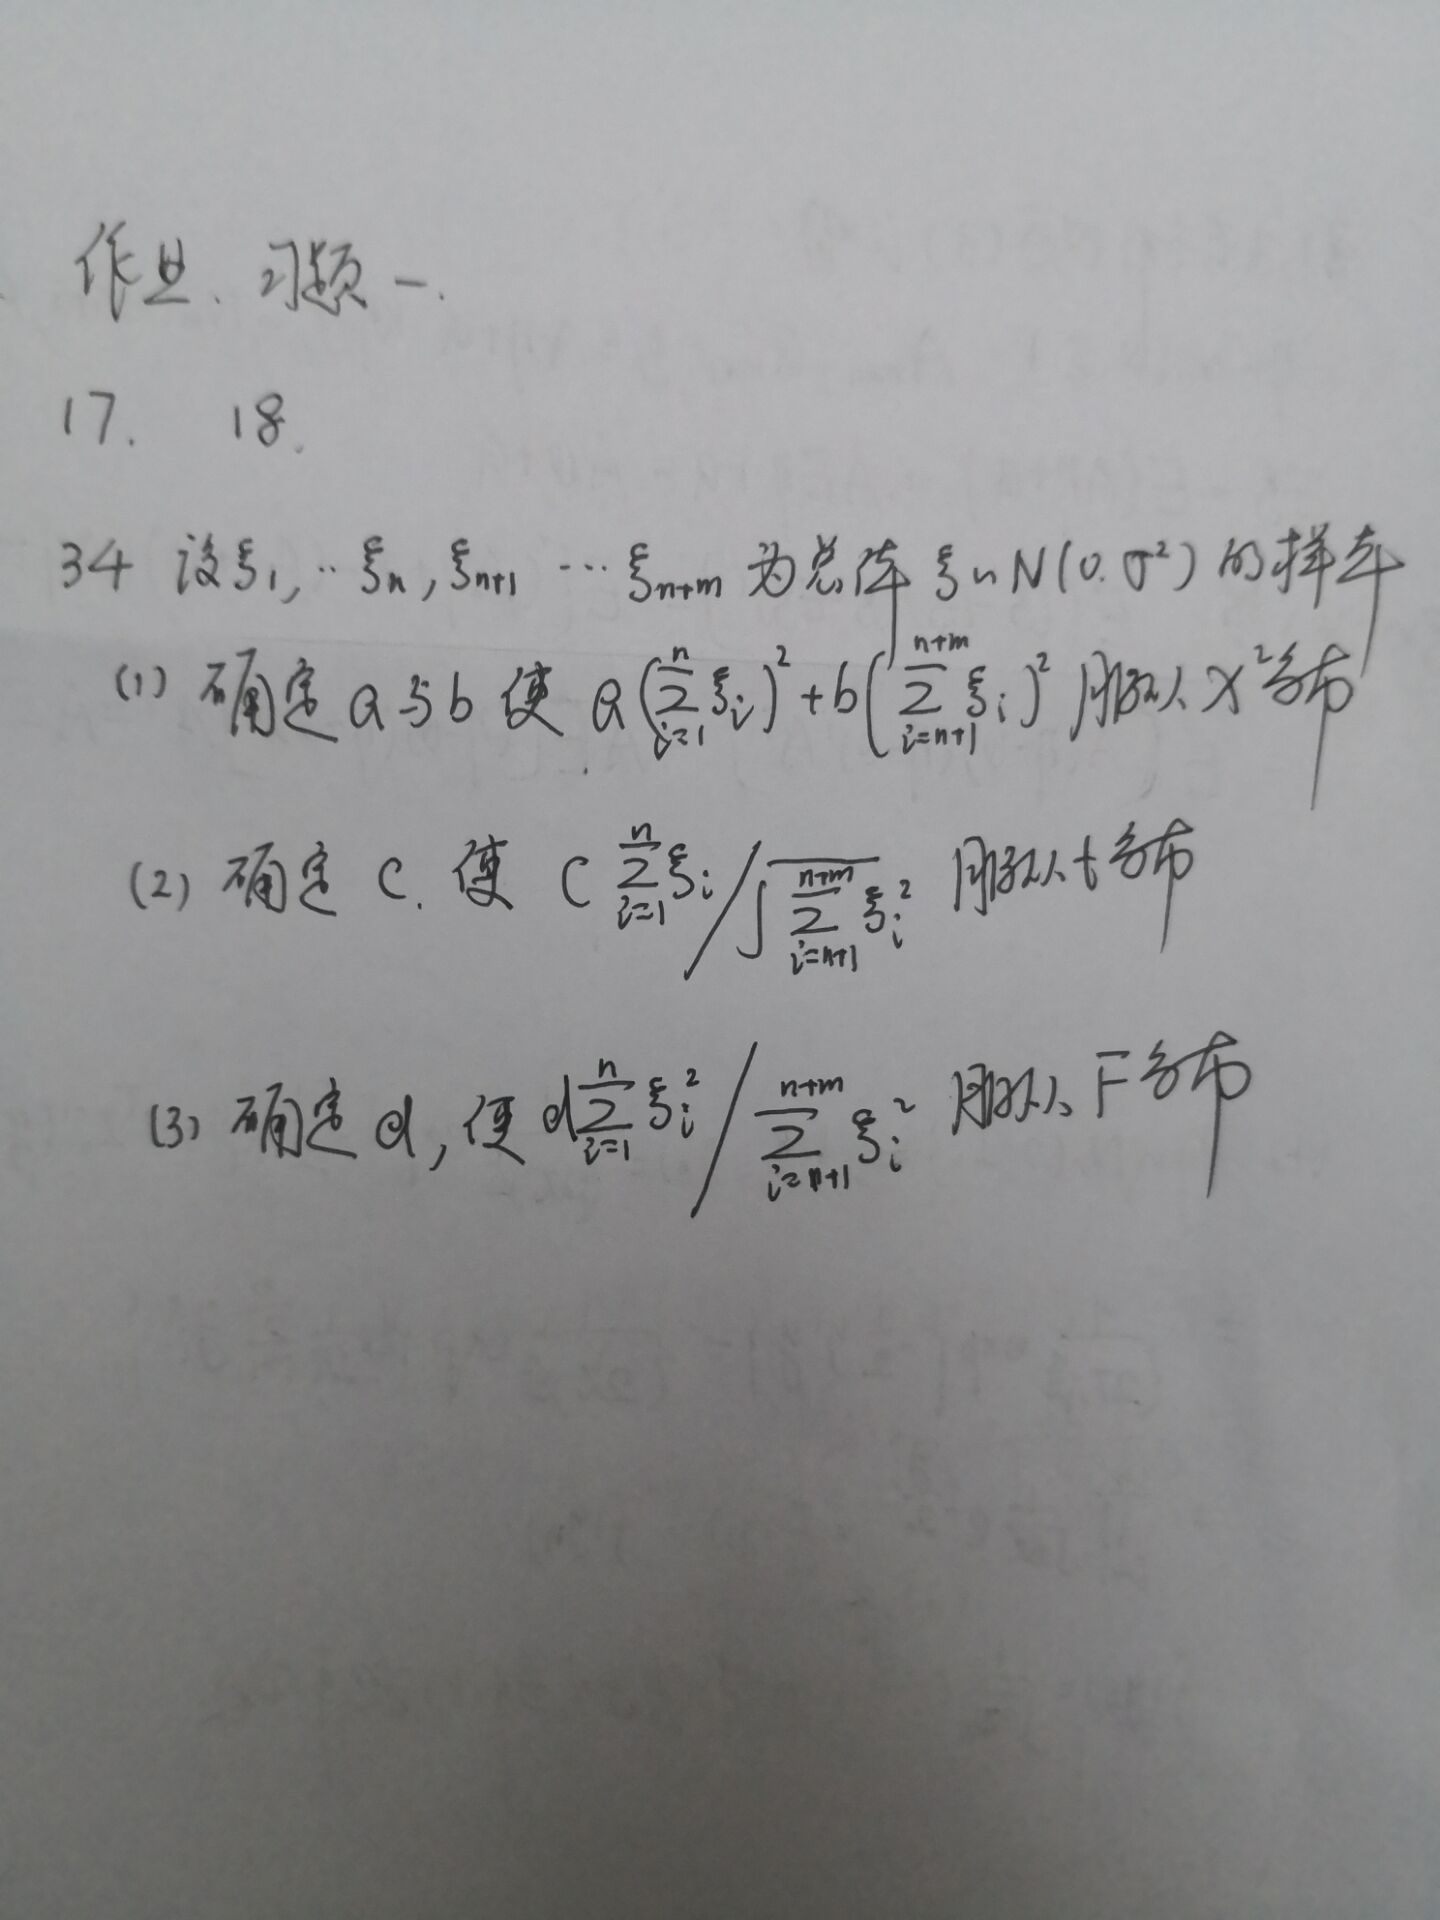 作业. 习题一.
17. 18.
34 设ξ₁, ‥ ξₙ, ξₙ₊₁ ⋯ ξₙ₊ₘ 为总体 ξ ~ N(0. σ²) 的样本
(1) 确定 a 与 b 使 a(∑ᵢ₌₁ⁿ ξᵢ)² + b(∑ᵢ₌ₙ₊₁ⁿ⁺ᵐ ξᵢ)² 服从 χ² 分布
(2) 确定 c. 使 c ∑ᵢ₌₁ⁿ ξᵢ / √(∑ᵢ₌ₙ₊₁ⁿ⁺ᵐ ξᵢ²) 服从 t 分布
(3) 确定 d, 使 d ∑ᵢ₌₁ⁿ ξᵢ² / ∑ᵢ₌ₙ₊₁ⁿ⁺ᵐ ξᵢ² 服从 F 分布